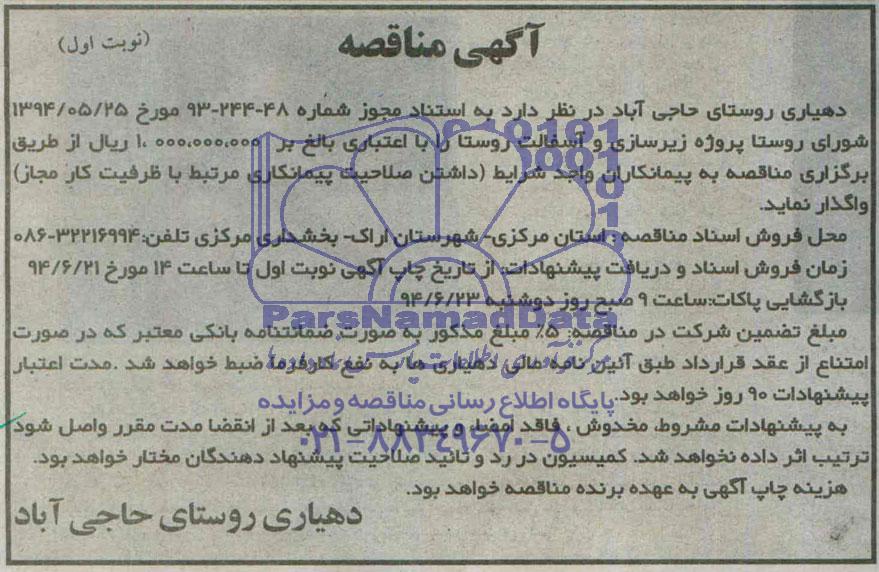 آگهی مناقصه
(نوبت اول)
دهیاری روستای حاجی آباد در نظر دارد به استناد مجوز شماره ۴۸-۲۴۴-۹۳ مورخ ۱۳۹۴/۰۵/۲۵
شورای روستا پروژه زیرسازی و آسفالت روستا را با اعتباری بالغ بر ۱،۰۰۰،۰۰۰،۰۰۰ ریال از طریق
برگزاری مناقصه به پیمانکاران واجد شرایط (داشتن صلاحیت پیمانکاری مرتبط با ظرفیت کار مجاز)
واگذار نماید.
محل فروش اسناد مناقصه : استان مرکزی- شهرستان اراک- بخشداری مرکزی تلفن:۳۲۲۱۶۹۹۴-۰۸۶
زمان فروش اسناد و دریافت پیشنهادات: از تاریخ چاپ آگهی نوبت اول تا ساعت ۱۴ مورخ ۹۴/۶/۲۱
بازگشایی پاکات:ساعت ۹ صبح روز دوشنبه ۹۴/۶/۲۳
مبلغ تضمین شرکت در مناقصه: ۵٪ مبلغ مذکور به صورت ضمانتنامه بانکی معتبر که در صورت
امتناع از عقد قرارداد طبق آئین نامه مالی دهیاری ها به نفع کارفرما ضبط خواهد شد .مدت اعتبار
پیشنهادات ۹۰ روز خواهد بود.
به پیشنهادات مشروط، مخدوش ، فاقد امضا، و پیشنهاداتی که بعد از انقضا مدت مقرر واصل شود
ترتیب اثر داده نخواهد شد. کمیسیون در رد و تائید صلاحیت پیشنهاد دهندگان مختار خواهد بود.
هزینه چاپ آگهی به عهده برنده مناقصه خواهد بود.
دهیاری روستای حاجی آباد
ParsNamadData
مرکز فرآوری اطلاعات پارس نماد داده ها
پایگاه اطلاع رسانی مناقصه و مزایده
۰۲۱-۸۸۳۴۹۶۷۰-۵